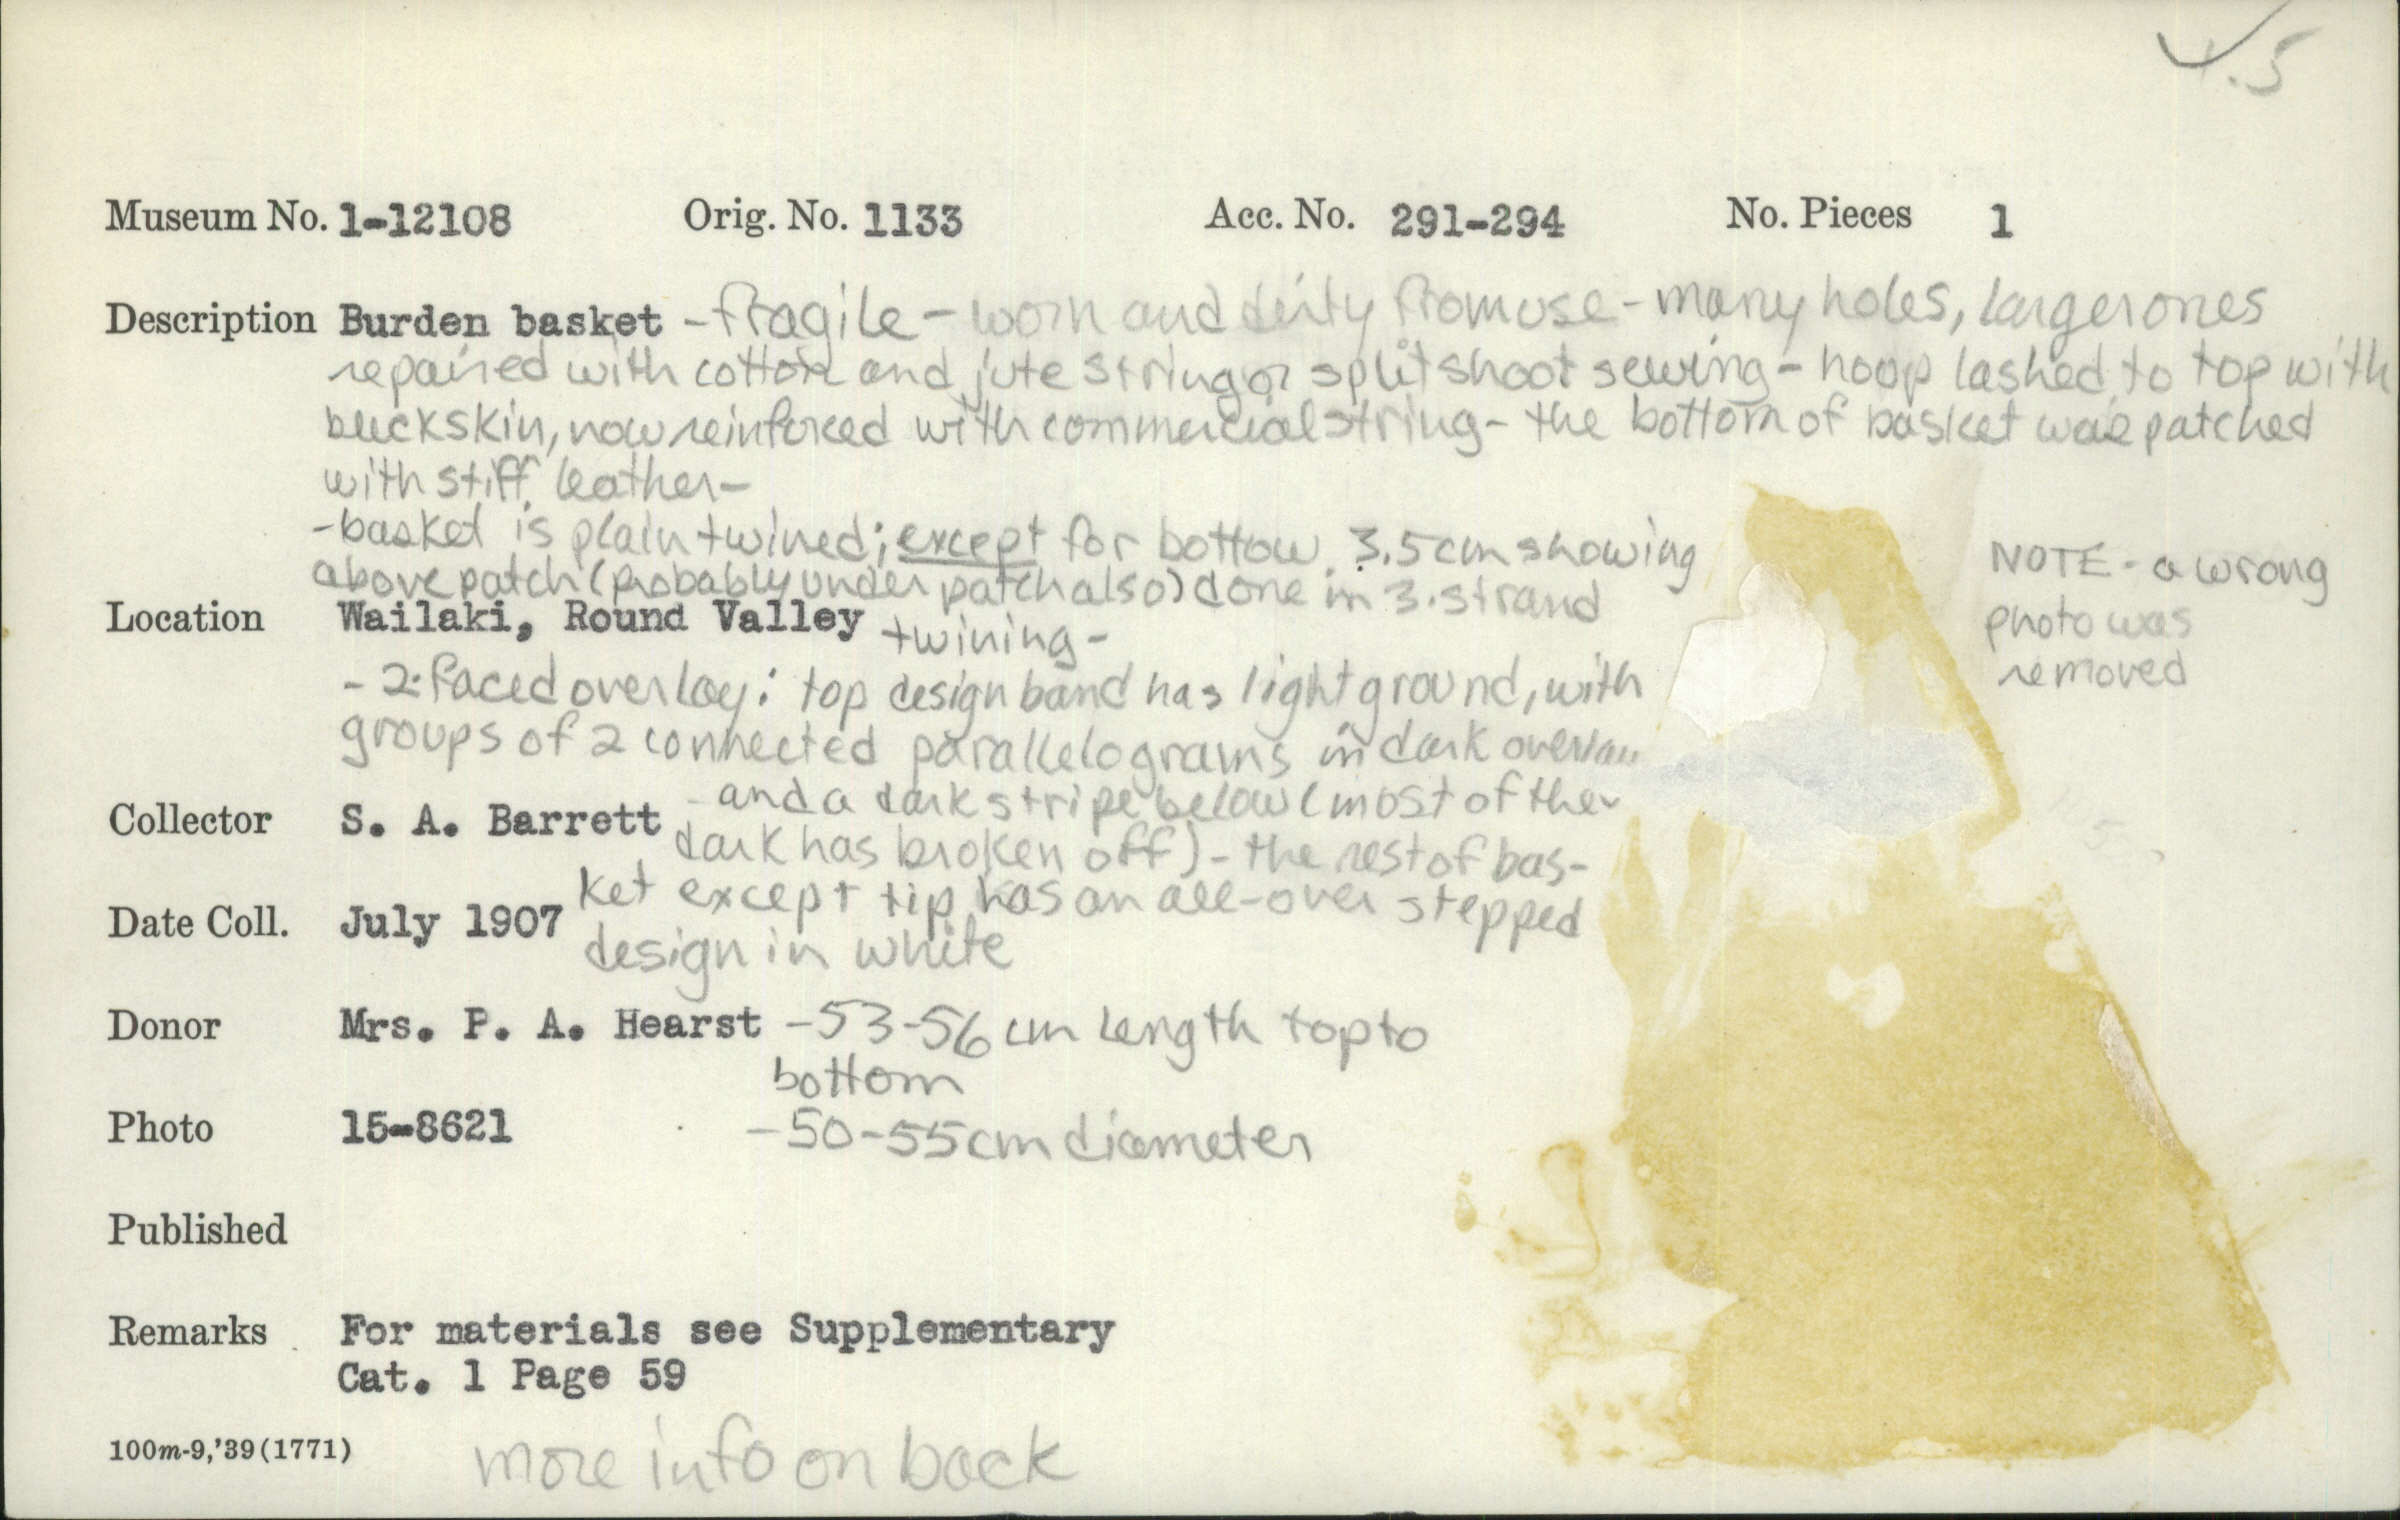 ✓.5
Museum No. 1-12108 Orig. No. 1133 Acc. No. 291-294 No. Pieces 1
Description Burden basket - fragile - worn and dirty from use - many holes, larger ones
repaired with cotton and jute string or split shoot sewing - hoop lashed to top with
buckskin, now reinforced with commercial string - the bottom of basket was patched
with stiff leather -
- basket is plain twined; except for bottow 3.5 cm showing
above patch (probably under patch also) done in 3-strand
Location Wailaki, Round Valley twining -
- 2-faced overlay: top design band has light ground, with
groups of 2 connected parallelograms in dark overlay
- and a dark stripe below (most of the
Collector S. A. Barrett dark has broken off) - the rest of bas-
ket except tip has an all-over stepped
Date Coll. July 1907 design in white
Donor Mrs. P. A. Hearst - 53-56 cm length top to
bottom
Photo 15-8621 - 50-55 cm diameter
Published
Remarks For materials see Supplementary
Cat. 1 Page 59
100m-9,'39(1771) more info on back
NOTE - a wrong
photo was
removed